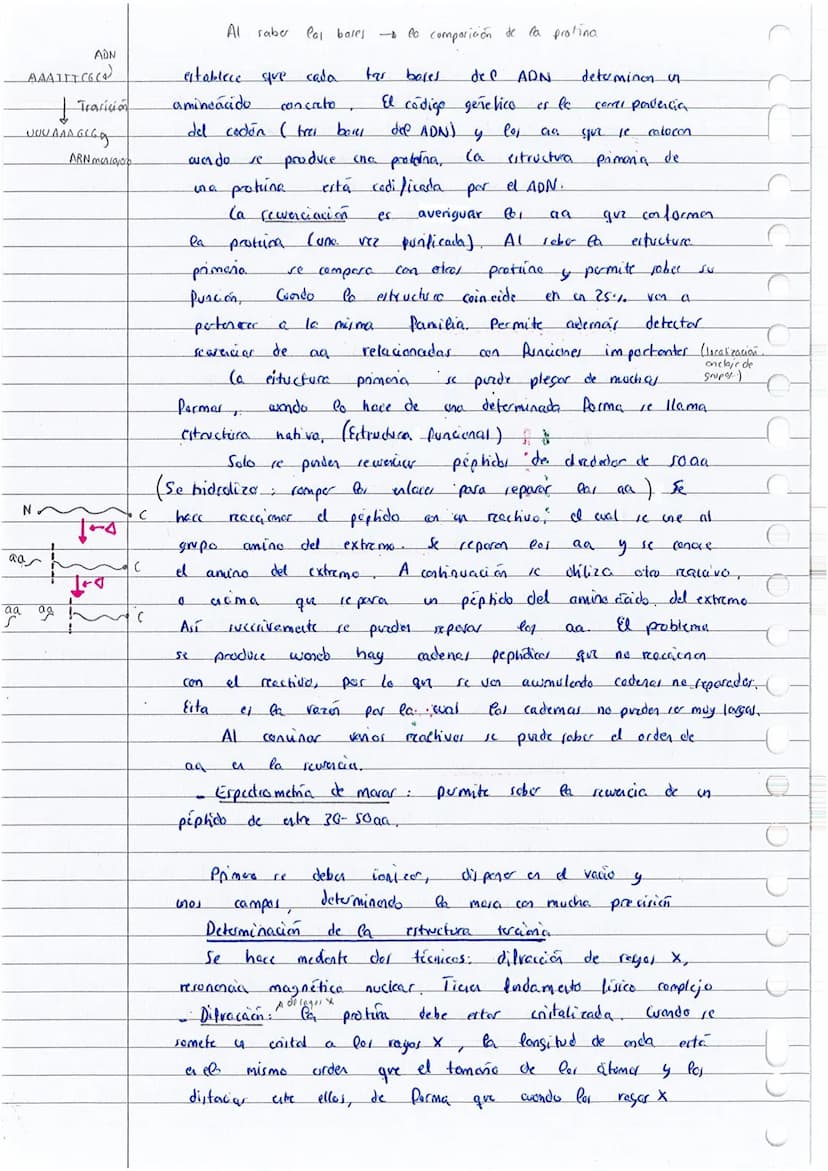 Al saber las bases → la composición de la protína
ADN
AAATTTCGC
↓ Trasición
UUUAAAGCGg
ARN mensajero
establece que cada tres bases del ADN determinan un
amineácido concreto. El código genético es la correspondencia
del codón (tres bases del ADN) y los aa que se colocan
cuando se produce una proteína, la estructura primaria de
una protína está codificada por el ADN.
La secuenciación es averiguar los aa que conforman
la protína (una vez purificada). Al saber la estuctura
primaria se compara con otras protína y permite saber su
función, Cuando la estructura coincide en un 25% van a
pertenecer a la misma familia. Permite además detectar
secuencias de aa relacionadas con funciones importantes (localización
anclaje de
grupos)
La estuctura primaria se puede plegar de muchas
formas, cuando lo hace de una determinada forma se llama
estructura nativa, (Estructura funcional)
Solo se pueden secuenciar péptidos de alrededor de 50aa
(Se hidroliza: romper los enlaces para separar los aa) Se
hace reaccionar el péptido con un reactivo, el cual se une al
grupo amino del extremo. Se separan los aa y se conoce
el amino del extremo. A continuación se utiliza otro reactivo,
o encima que separa un péptido del amino ácido del extremo
Así sucesivamente se pueden separar los aa. El problema
se produce cuando hay cadenas peptídicas que no reaccionan
con el reactivo, por lo que se van acumulando cadenas no separadas.
Esta es la razón por la cual las cadenas no pueden ser muy largas.
N C
aa C
aa aa C
Al convinar varios reactivos se puede saber el orden de
aa en la secuencia.
- Espectrometría de masas: permite saber la secuencia de un
péptido de entre 30-50aa.
Primero se deben ionizar, disponer en el vacío y
unos campos, determinando la masa con mucha precisión
Determinación de la estructura terciaria
Se hace mediante dos técnicas: difracción de rayos X,
resonancia magnética nuclear. Tienen fundamento físico complejo
- Difracción: A de rayos X la protína debe estar cristalizada. Cuando se
somete un cristal a los rayos X, la longitud de onda está
en el mismo orden que el tamaño de los átomos y las
distacias entre ellos, de forma que cuando los rayos X